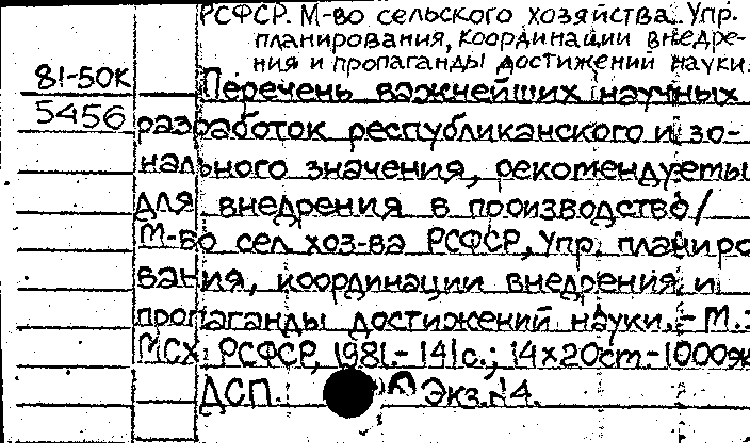 РСФСР. М-во сельского хозяйства. Упр.
планирования, координации внедре-
ния и пропаганды достижений науки.
81-50к
Перечень важнейших научных
5456
разработок республиканского и зо-
нального значения, рекомендуемы
для внедрения в производство/
М-во сел. хоз-ва РСФСР, Упр. планиро
вания, координации внедрения и
пропаганды достижений науки. - М.:
МСХ РСФСР, 1981. - 141 с.; 14×20 см. - 1000 эк
ДСП. Экз. 14.